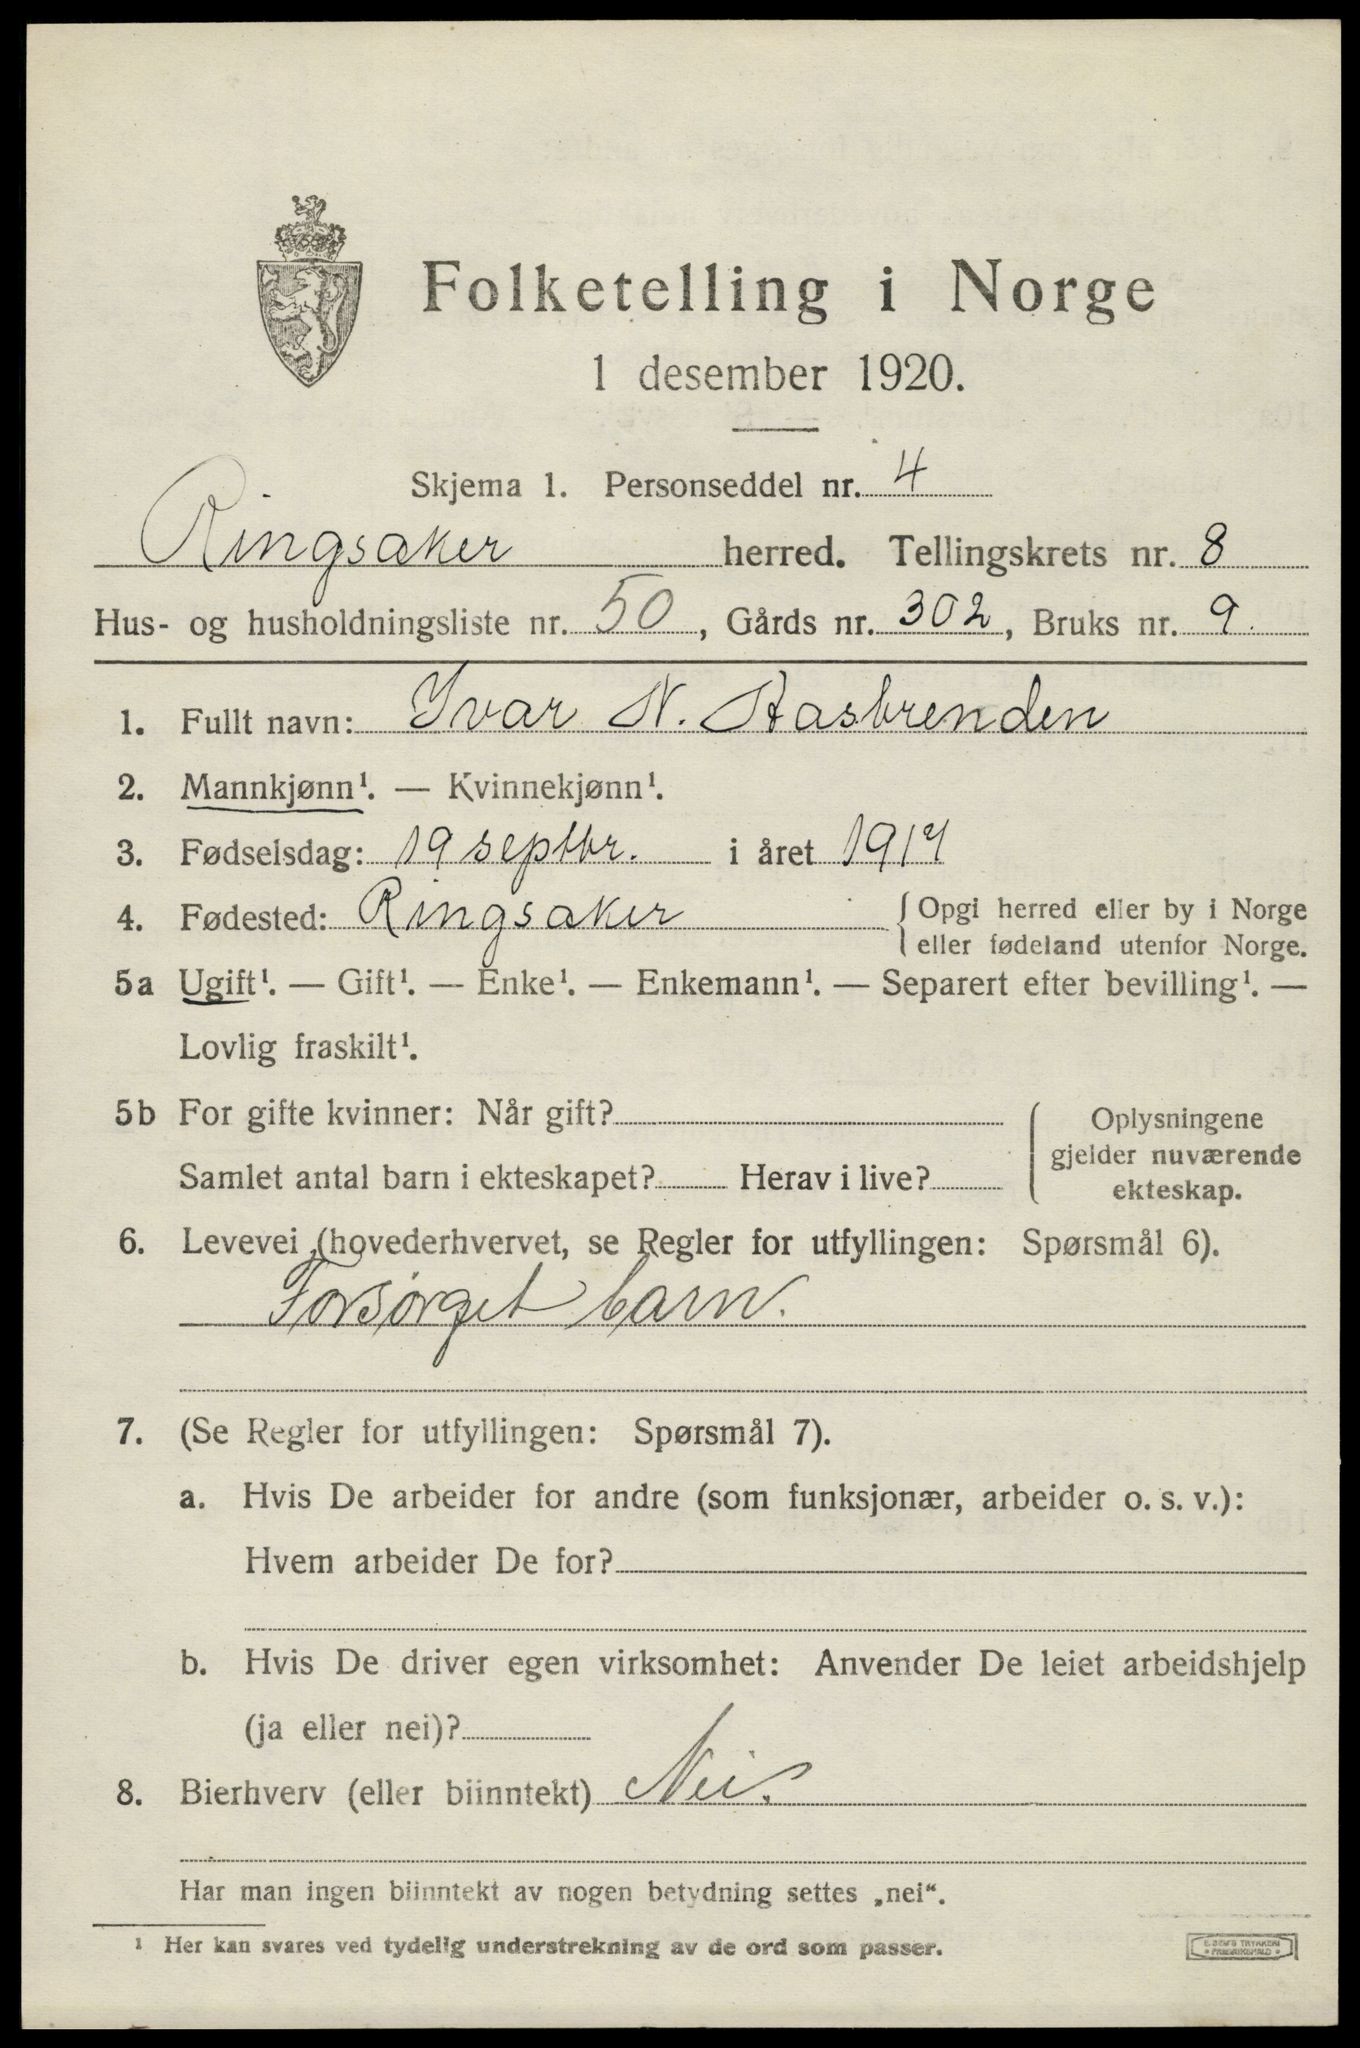 Folketelling i Norge
1 desember 1920.
Skjema 1. Personseddel nr. 4
Ringsaker herred. Tellingskrets nr. 8
Hus- og husholdningsliste nr. 50, Gårds nr. 302, Bruks nr. 9.
1. Fullt navn: Yvar N. Aasbrenden
2. Mannkjønn¹. — Kvinnekjønn¹.
3. Fødselsdag: 19 septbr. i året 1917
4. Fødested: Ringsaker {Opgi herred eller by i Norge
eller fødeland utenfor Norge.
5a Ugift¹. — Gift¹. — Enke¹. — Enkemann¹. — Separert efter bevilling¹. —
Lovlig fraskilt¹.
5b For gifte kvinner: Når gift?
Samlet antal barn i ekteskapet? Herav i live?
Oplysningene
gjelder nuværende
ekteskap.
6. Levevei (hovederhvervet, se Regler for utfyllingen: Spørsmål 6).
Forsørget barn.
7. (Se Regler for utfyllingen: Spørsmål 7).
a. Hvis De arbeider for andre (som funksjonær, arbeider o. s. v.):
Hvem arbeider De for?
b. Hvis De driver egen virksomhet: Anvender De leiet arbeidshjelp
(ja eller nei)?
8. Bierhverv (eller biinntekt) Nei.
Har man ingen biinntekt av nogen betydning settes „nei“.
¹ Her kan svares ved tydelig understrekning av de ord som passer.
E. SEM'S TRYKKERI
FREDRIKSHALD